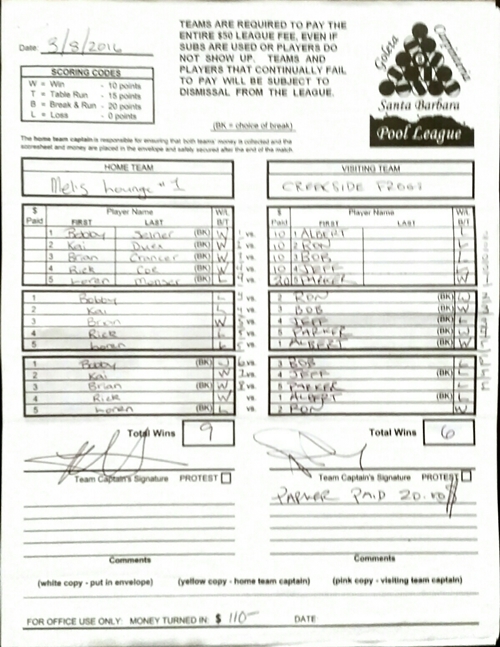 TEAMS ARE REQUIRED TO PAY THE
ENTIRE $50 LEAGUE FEE, EVEN IF
SUBS ARE USED OR PLAYERS DO
NOT SHOW UP. TEAMS AND
PLAYERS THAT CONTINUALLY FAIL
TO PAY WILL BE SUBJECT TO
DISMISSAL FROM THE LEAGUE.
Date: 3/8/2016
SCORING CODES
W = Win - 10 points
T = Table Run - 15 points
B = Break & Run - 20 points
L = Loss - 0 points
(BK = choice of break)
Goleta
Carpinteria
Santa Barbara
Pool League
The home team captain is responsible for ensuring that both teams' money is collected and the
scoresheet and money are placed in the envelope and safely secured after the end of the match.
HOME TEAM
Lounge # 1
$ Paid Player Name FIRST LAST W/L B/T
1 Bobby (BK) W
2 Kai (BK) W
3 Brian (BK) W
4 Rick Coe (BK) W
5 Loren (BK) L
1 Bobby L
2 Kai L
3 Brian W
4 Rick L
5 Loren L
1 Bobby (BK) W
2 Kai W
3 Brian (BK) W
4 Rick W
5 Loren (BK) L
VISITING TEAM
CREEKSIDE FROGS
$ Paid Player Name FIRST LAST W/L B/T
10 1 ALBERT L
10 2 RON L
10 3 BOB L
10 4 JEFF L
20 5 PARKER W
2 RON (BK) W
3 BOB (BK) W
4 JEFF (BK) L
5 PARKER (BK) W
1 ALBERT (BK) W
3 BOB L
4 JEFF (BK) L
5 PARKER L
1 ALBERT (BK) L
2 RON W
Total Wins 9
Total Wins 6
Team Captain's Signature PROTEST
Team Captain's Signature PROTEST
PARKER PAID 20.00
Comments
Comments
(white copy - put in envelope) (yellow copy - home team captain) (pink copy - visiting team captain)
FOR OFFICE USE ONLY: MONEY TURNED IN: $ 110- DATE